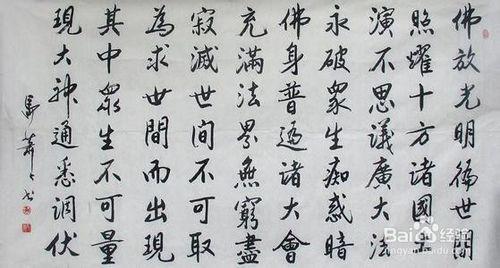 佛放光明徧世間
照耀十方諸國土
演不思議廣大法
永破衆生痴惑暗
佛身普遍諸大會
充滿法界無窮盡
寂滅世间不可取
為求世間而出現
其中衆生不可量
現大神通悉調伏
馬萧々书
Baidu 经验
jingyan.baidu.com